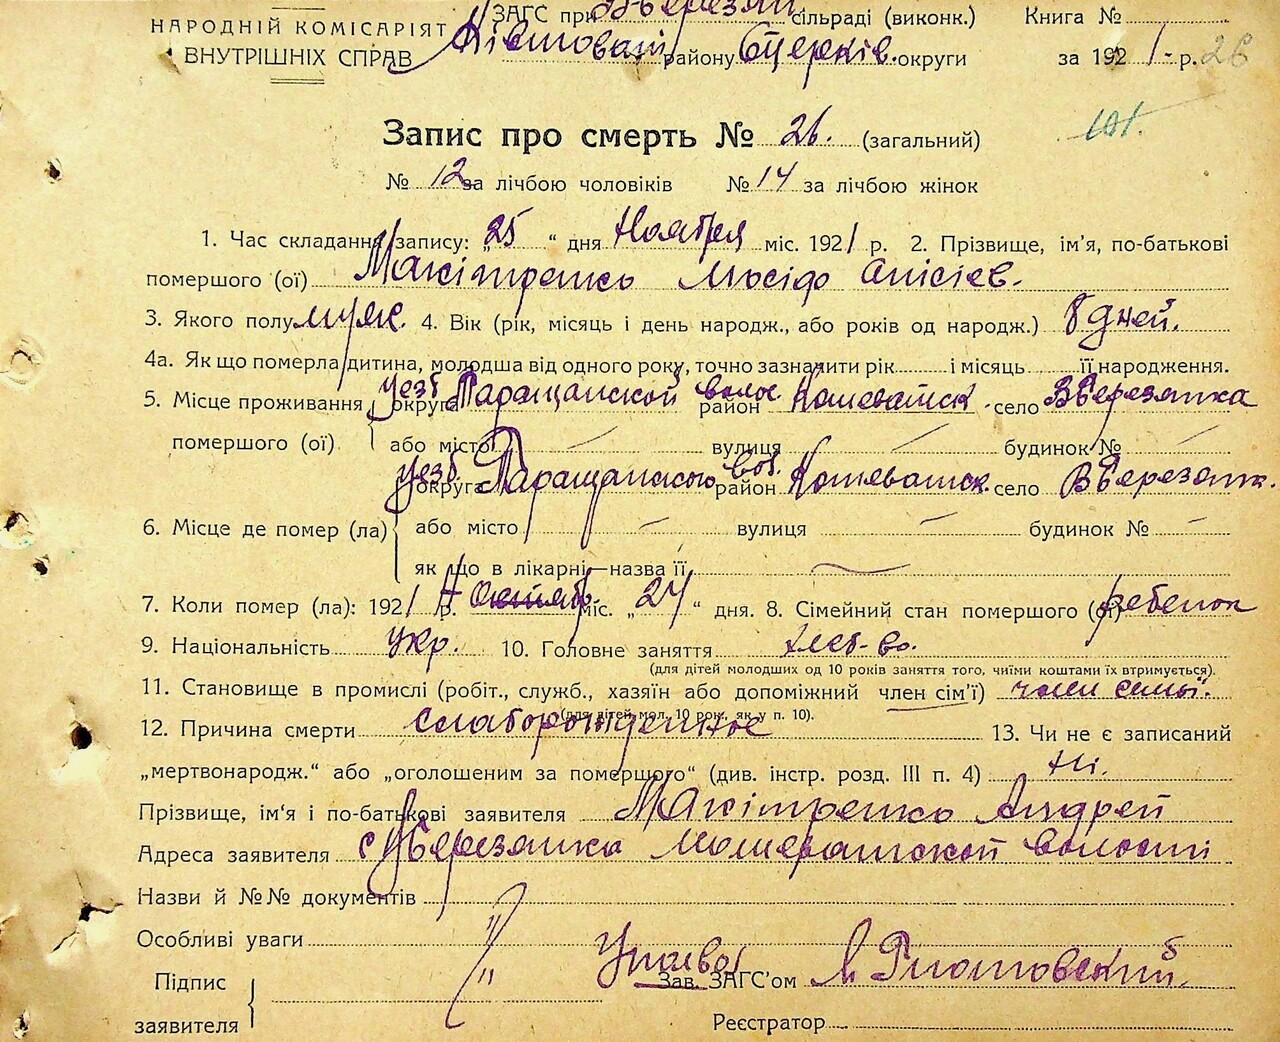 НАРОДНІЙ КОМІСАРІЯТ
ВНУТРІШНІХ СПРАВ
ЗАГС при В Березян. сільраді (виконк.)
району Бцерків. округи
Книга №
за 1921 р. 26
Запис про смерть № 26. (загальний)
№ 12 за лічбою чоловіків № 14 за лічбою жінок
1. Час складання запису: „25“ дня Ноября міс. 1921 р. 2. Прізвище, ім’я, по-батькові
помершого (ої) Макітренко
3. Якого полу муж. 4. Вік (рік, місяць і день народж., або років од народж.) 8 дней.
4а. Як що померла дитина, молодша від одного року, точно зазначити рік і місяць її народження.
5. Місце проживання помершого (ої) уезд округа Таращанской волос район Кошеватск. село ВБерезянка
або місто — вулиця — будинок № —
6. Місце де помер (ла) уезд. округа Таращанского вол. район Кошеватск. село ВБерезянк.
або місто — вулиця — будинок № —
як що в лікарні—назва її
7. Коли помер (ла): 1921 р. Октябр міс. „24“ дня. 8. Сімейний стан помершого (ої) ребенок
9. Національність укр. 10. Головне заняття хлеб-во.
(для дітей молодших од 10 років заняття того, чиїми коштами їх втримується).
11. Становище в промислі (робіт., служб., хазяїн або допоміжний член сім’ї) член семьї.
(для дітей мол. 10 рок. як у п. 10).
12. Причина смерти слаборожденное 13. Чи не є записаний
„мертвонародж.“ або „оголошеним за помершого“ (див. інстр. розд. III п. 4) Ні.
Прізвище, ім‘я і по-батькові заявителя Макітренко Андрей
Адреса заявителя с ВБерезянка волості
Назви й №№ документів
Особливі уваги
Підпис
заявителя
Зав. ЗАГС’ом
Реєстратор